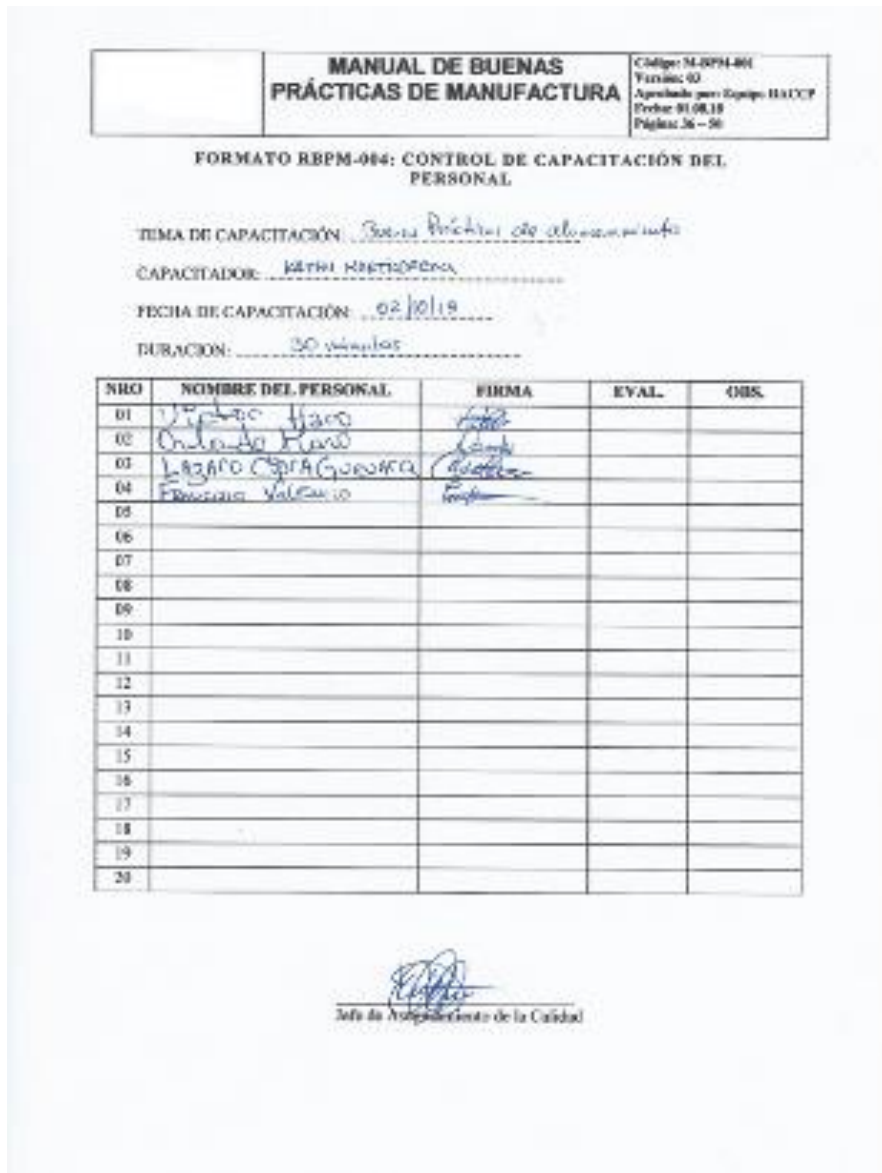 MANUAL DE BUENAS
PRÁCTICAS DE MANUFACTURA
Código: M-BPM-001
Versión: 03
Aprobado por: Equipo HACCP
Fecha: 01.08.18
Página: 36 – 50
FORMATO RBPM-004: CONTROL DE CAPACITACIÓN DEL
PERSONAL
TEMA DE CAPACITACIÓN: Buenas Prácticas de almacenamiento
CAPACITADOR:
FECHA DE CAPACITACIÓN: 02/10/18
DURACION: 30 minutos
NRO NOMBRE DEL PERSONAL FIRMA EVAL. OBS.
01 Haro
02 Orlando Haro
03 LAZARO Guevara
04 Valencio
05
06
07
08
09
10
11
12
13
14
15
16
17
18
19
20
Jefe de Aseguramiento de la Calidad